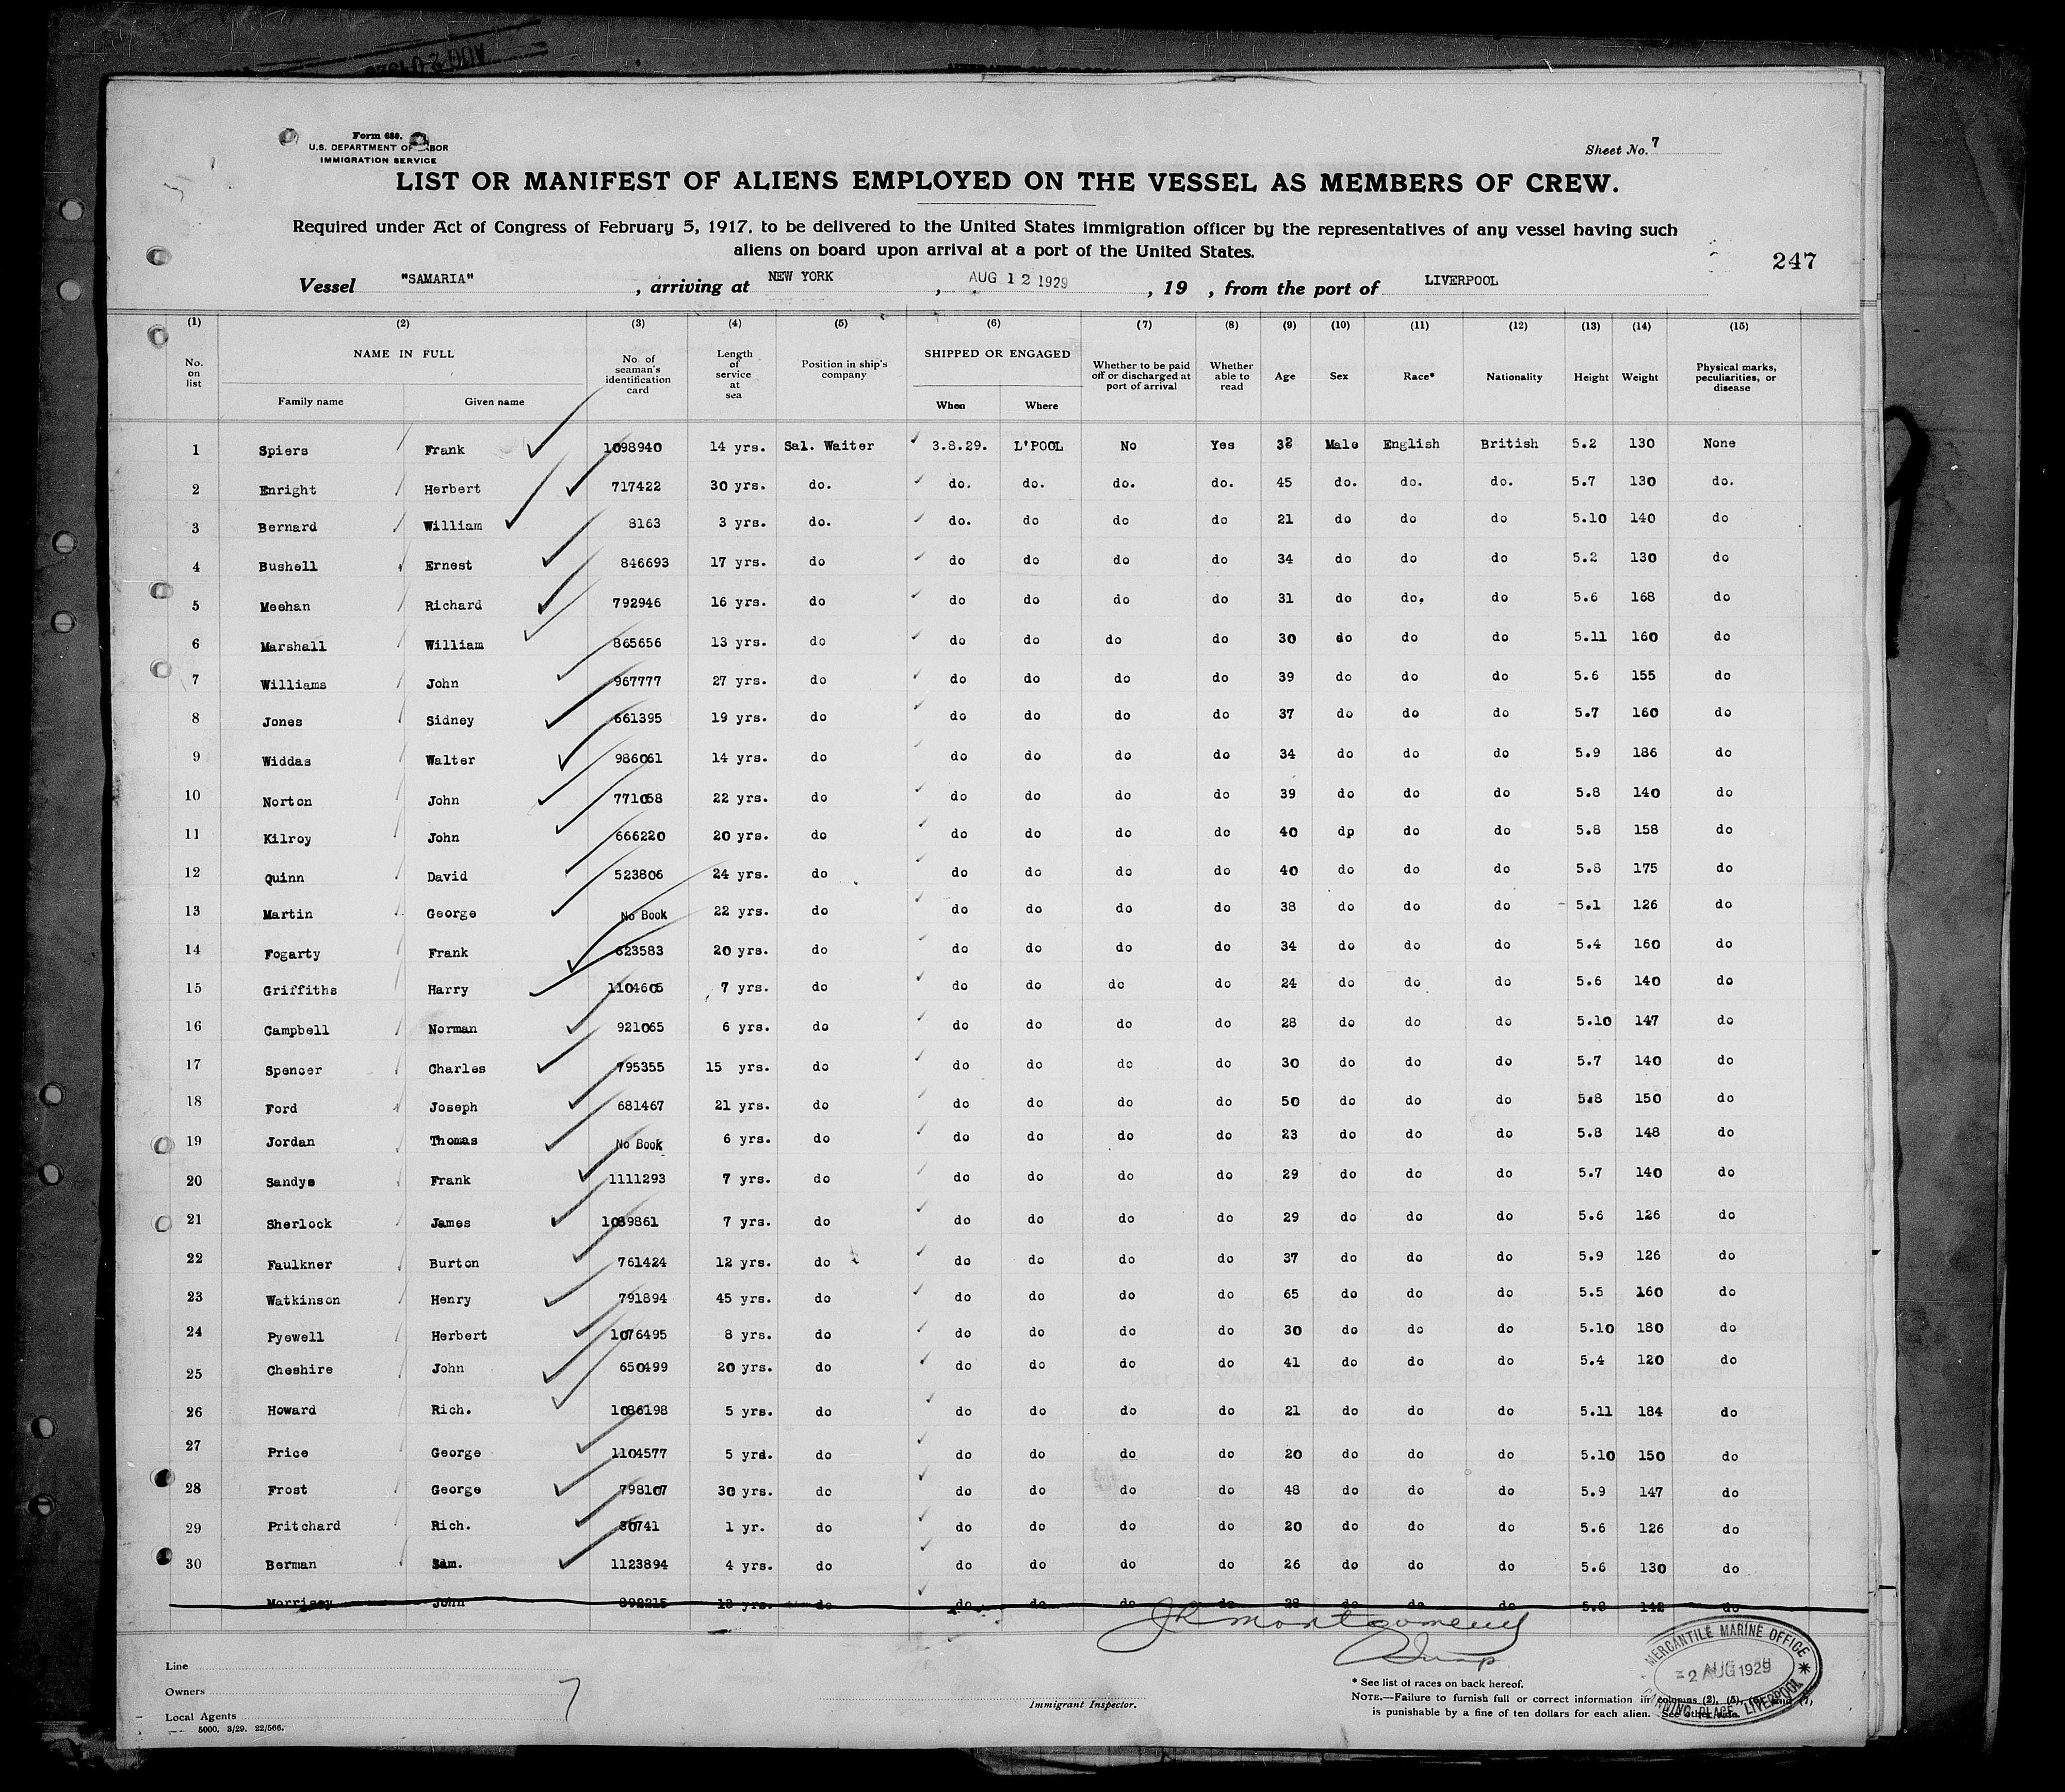 Form 680.
U.S. DEPARTMENT OF LABOR
IMMIGRATION SERVICE
Sheet No. 7
LIST OR MANIFEST OF ALIENS EMPLOYED ON THE VESSEL AS MEMBERS OF CREW.
Required under Act of Congress of February 5, 1917, to be delivered to the United States immigration officer by the representatives of any vessel having such
aliens on board upon arrival at a port of the United States.
247
Vessel "SAMARIA", arriving at NEW YORK, AUG 12 1929, 19 , from the port of LIVERPOOL
(1) (2) (3) (4) (5) (6) (7) (8) (9) (10) (11) (12) (13) (14) (15)
No. on list NAME IN FULL Family name Given name No. of seaman's identification card Length of service at sea Position in ship's company SHIPPED OR ENGAGED When Where Whether to be paid off or discharged at port of arrival Whether able to read Age Sex Race* Nationality Height Weight Physical marks, peculiarities, or disease
1 Spiers Frank 1098940 14 yrs. Sal. Waiter 3.8.29. L'POOL No Yes Male English British 5.2 130 None
2 Enright Herbert 717422 30 yrs. do. do. do. do. do. 45 do. do. do. 5.7 130 do.
3 Bernard William 8163 3 yrs. do. do. do do do 21 do do do 5.10 140 do
4 Bushell Ernest 846693 17 yrs. do do do do do 34 do do do 5.2 130 do
5 Meehan Richard 792946 16 yrs. do do do do do 31 do do. do 5.6 168 do
6 Marshall William 865656 13 yrs. do do do do do 30 do do do 5.11 160 do
7 Williams John 967777 27 yrs. do do do do do 39 do do do 5.6 155 do
8 Jones Sidney 661395 19 yrs. do do do do do 37 do do do 5.7 160 do
9 Widdas Walter 986061 14 yrs. do do do do do 34 do do do 5.9 186 do
10 Norton John 771058 22 yrs. do do do do do 39 do do do 5.8 140 do
11 Kilroy John 666220 20 yrs. do do do do do 40 dp do do 5.8 158 do
12 Quinn David 523806 24 yrs. do do do do do 40 do do do 5.8 175 do
13 Martin George No Book 22 yrs. do do do do do 38 do do do 5.1 126 do
14 Fogarty Frank 623583 20 yrs. do do do do do 34 do do do 5.4 160 do
15 Griffiths Harry 1104605 7 yrs. do do do do do 24 do do do 5.6 140 do
16 Campbell Norman 921065 6 yrs. do do do do do 28 do do do 5.10 147 do
17 Spencer Charles 795355 15 yrs. do do do do do 30 do do do 5.7 140 do
18 Ford Joseph 681467 21 yrs. do do do do do 50 do do do 5.8 150 do
19 Jordan Thomas No Book 6 yrs. do do do do do 23 do do do 5.8 148 do
20 Sandys Frank 1111293 7 yrs. do do do do do 29 do do do 5.7 140 do
21 Sherlock James 1089861 7 yrs. do do do do do 29 do do do 5.6 126 do
22 Faulkner Burton 761424 12 yrs. do do do do do 37 do do do 5.9 126 do
23 Watkinson Henry 791894 45 yrs. do do do do do 65 do do do 5.5 160 do
24 Pyewell Herbert 1076495 8 yrs. do do do do do 30 do do do 5.10 180 do
25 Cheshire John 650499 20 yrs. do do do do do 41 do do do 5.4 120 do
26 Howard Rich. 1086198 5 yrs. do do do do do 21 do do do 5.11 184 do
27 Price George 1104577 5 yrd. do do do do do 20 do do do 5.10 150 do
28 Frost George 798107 30 yrs. do do do do do 48 do do do 5.9 147 do
29 Pritchard Rich. 1 yr. do do do do do 20 do do do 5.6 126 do
30 Berman Sam. 1123894 4 yrs. do do do do do 26 do do do 5.6 130 do
Morrisey John do do do do do do do do 5.8 142 do
JR Montgomery
Line
Owners
Local Agents
5000. 3/29. 22/566.
7
Immigrant Inspector.
* See list of races on back hereof.
NOTE.—Failure to furnish full or correct information in columns (2), (5), (6), and (7),
is punishable by a fine of ten dollars for each alien. See other side.
MERCANTILE MARINE OFFICE
2 AUG 1929
CANNING PLACE, LIVERPOOL